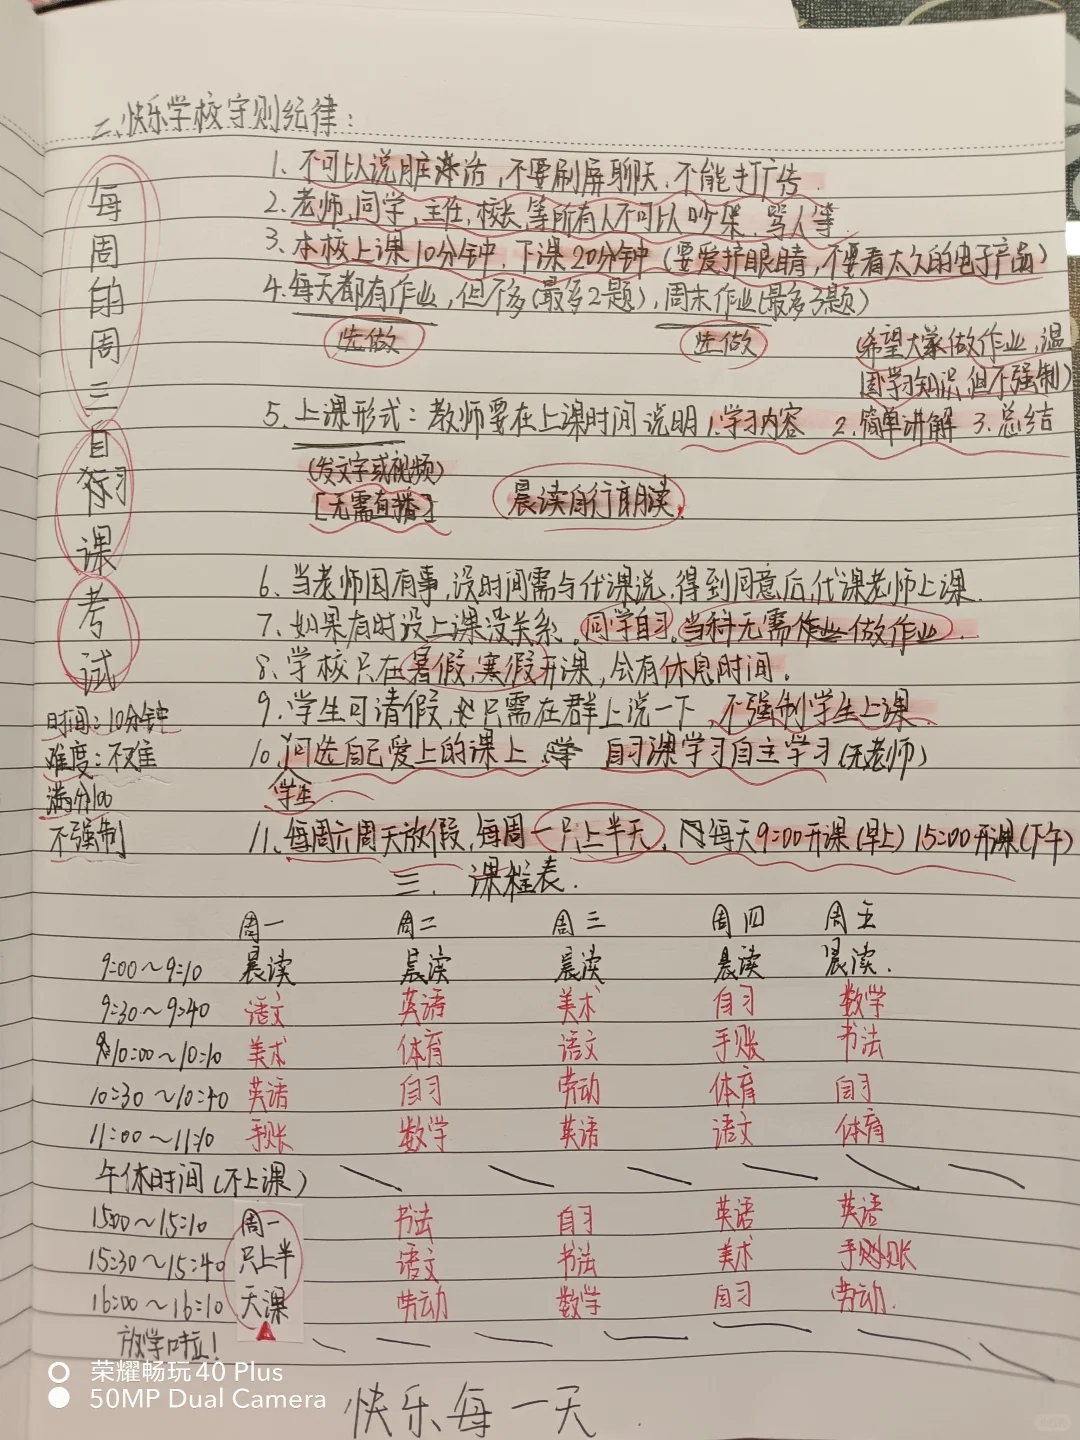 二、快乐学校守则纪律：
1、不可以说脏话，不要刷屏聊天，不能打广告．
2、老师，同学，主任，校长，等所有人不可以吵架，骂人等．
3、本校上课10分钟，下课20分钟（要爱护眼睛，不要看太久的电子产品）
4、每天都有作业，但不多（最多2题），周末作业（最多3题）
选做 选做 （希望大家做作业，温
固学习知识，但不强制）
5、上课形式：教师要在上课时间说明 1.学习内容 2.简单讲解 3.总结
（发文字或视频）
[无需直播] 晨读自行朗读．
6、当老师因有事，没时间需与代课说，得到同意后，代课老师上课．
7、如果有时没上课没关系．同学自习．当科无需做作业．
8、学校只在暑假，寒假开课，会有休息时间．
9、学生可请假，只需在群上说一下，不强制学生上课．
10、学生可选自己爱上的课上 自习课学习自主学习（无老师）
11、每周六周天放假，每周一只上半天，每天9:00开课（早上）15:00开课（下午）
每周的周三自习课考试
时间：10分钟
难度：不难
满分100
不强制
三．课程表．
周一 周二 周三 周四 周五
9:00～9:10 晨读 晨读 晨读 晨读 晨读．
9:30～9:40 语文 英语 美术 自习 数学
10:00～10:10 美术 体育 语文 手账 书法
10:30～10:40 英语 自习 劳动 体育 自习
11:00～11:10 手账 数学 英语 语文 体育
午休时间（不上课）
15:00～15:10 周一 书法 自习 英语 英语
15:30～15:40 只上半 语文 书法 美术 手账
16:00～16:10 天课 劳动 数学 自习 劳动．
放学啦！
快乐每一天．
荣耀畅玩40 Plus
50MP Dual Camera